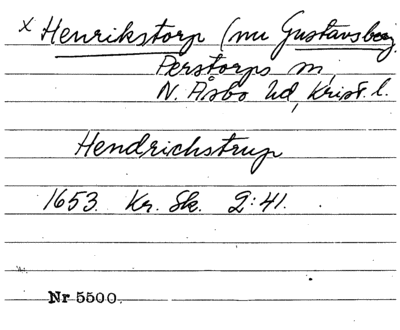 x Henrikstorp (nu Gustavsborg,
Perstorps sn,
N. Åsbo hd, Krist. l.
Hendrichstrup
1653. Kr. Sk. 2:41.
Nr 5500.